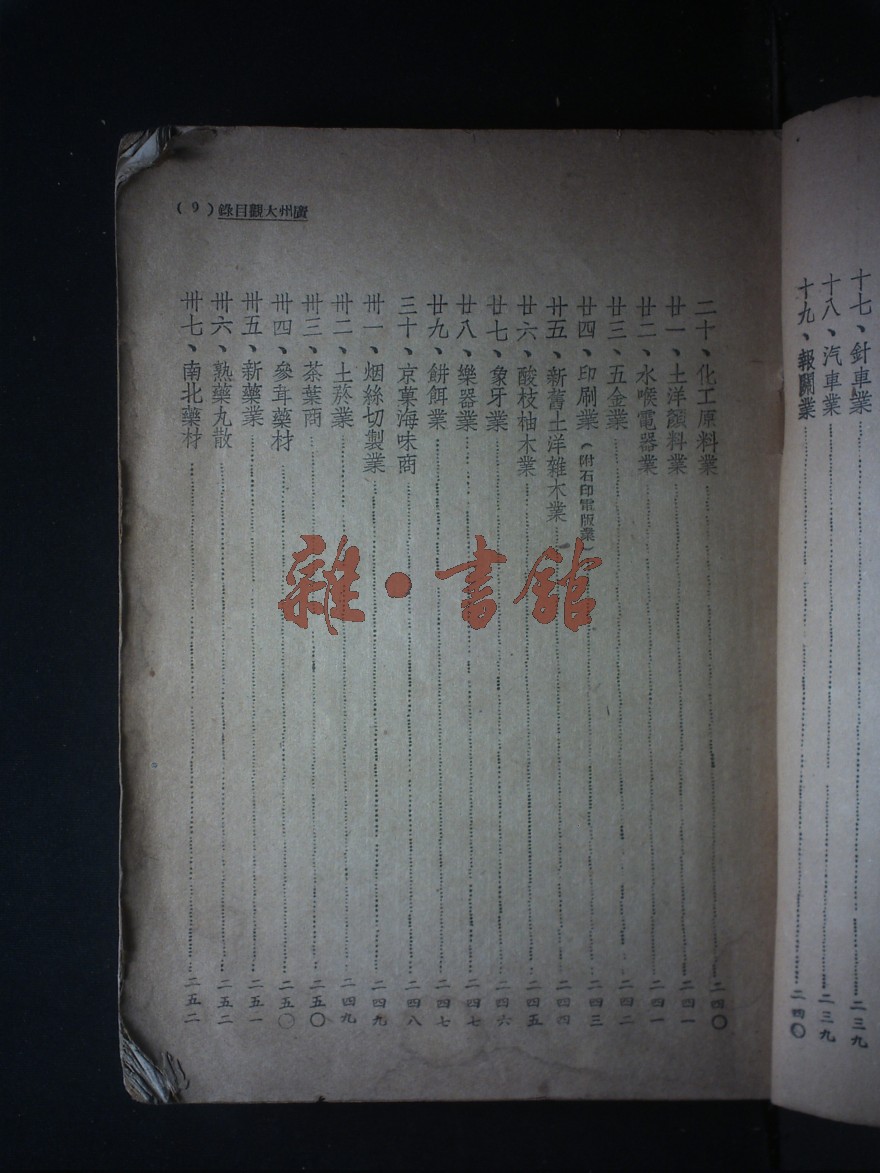 十七、針車業……二三九
十八、汽車業……二三九
十九、報關業……二四〇
廣州大觀目錄(9)
二十、化工原料業……二四〇
廿一、土洋顏料業……二四一
廿二、水喉電器業……二四一
廿三、五金業……二四二
廿四、印刷業(附石印電版業)……二四三
廿五、新舊土洋雜木業……二四四
廿六、酸枝柚木業……二四五
廿七、象牙業……二四六
廿八、樂器業……二四七
廿九、餅餌業……二四七
三十、京菓海味商……二四八
卅一、烟絲切製業……二四九
卅二、土菸業……二四九
卅三、茶葉商……二五〇
卅四、參茸藥材……二五〇
卅五、新藥業……二五一
卅六、熟藥丸散……二五二
卅七、南北藥材……二五二
雜·書館